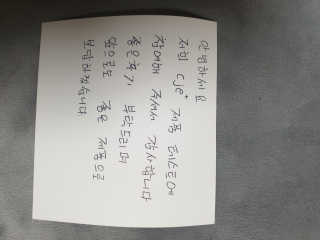 안녕하세요
저희 cje+ 제품 테스트에
참여해 주셔서 감사합니다
좋은후기 부탁드리며
앞으로도 좋은 제품으로
보답하겠습니다